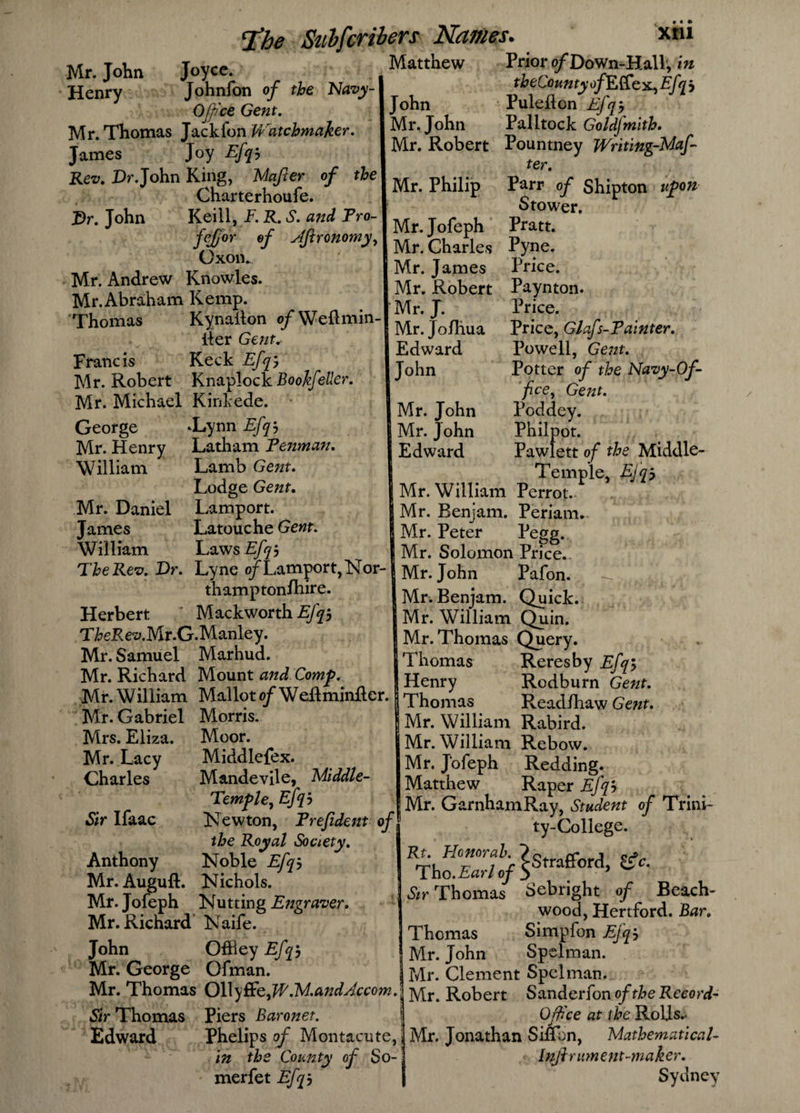 The Subſcribers Names. xiii
Mr. John Joyce.
Henry Johnſon of the Navy-
Office Gent.
Mr. Thomas Jackſon Watchmaker.
James Joy Eſq;
Rev. Dr. John King, Maſter of the
Charterhouſe.
Dr. John Keill, F. R. S. and Pro-
feſſor of Aſtronomy,
Oxon.
Mr. Andrew Knowles.
Mr. Abraham Kemp.
Thomas Kynaſton of Weſtmin-
ſter Gent.
Francis Keck Eſq;
Mr. Robert Knaplock Bookſeller.
Mr. Michael Kinkede.
George Lynn Eſq;
Mr. Henry Latham Penman.
William Lamb Gent.
Lodge Gent.
Mr. Daniel Lamport.
James Latouche Gent.
William Laws Eſq;
The Rev. Dr. Lyne of Lamport, Nor-
thamptonſhire.
Herbert Mackworth Eſq;
The Rev. Mr. G. Manley.
Mr. Samuel Marhud.
Mr. Richard Mount and Comp.
Mr. William Mallot of Weſtminſter.
Mr. Gabriel Morris.
Mrs. Eliza. Moor.
Mr. Lacy Middleſex.
Charles Mandevile, Middle-
Temple, Eſq;
Sir Iſaac Newton, Preſident of
the Royal Society.
Anthony Noble Eſq;
Mr. Auguſt. Nichols.
Mr. Joſeph Nutting Engraver.
Mr. Richard Naiſe.
John Offley Eſq;
Mr. George Oſman.
Mr. Thomas Ollyffe, W.M. and Accom.
Sir Thomas Piers Baronet.
Edward Phelips of Montacute,
in the County of So-
merſet Eſq;
Matthew Prior of Down-Hall, in
the County of Eſſex, Eſq;
John Puleſton Eſq;
Mr. John Palltock Goldſmith.
Mr. Robert Pountney Writing-Maſ-
ter.
Mr. Philip Parr of Shipton upon
Stower.
Mr. Joſeph Pratt.
Mr. Charles Pyne.
Mr. James Price.
Mr. Robert Paynton.
Mr. J. Price.
Mr. Joſhua Price, Glaſs-Painter.
Edward Powell, Gent.
John Potter of the Navy-Of-
fice, Gent.
Mr. John Poddey.
Mr. John Philpot.
Edward Pawlett of the Middle-
Temple, Eſq;
Mr. William Perrot.
Mr. Benjam. Periam.
Mr. Peter Pegg.
Mr. Solomon Price.
Mr. John Paſon.
Mr. Benjam. Quick.
Mr. William Quin.
Mr. Thomas Query.
Thomas Reresby Eſq;
Henry Rodburn Gent.
Thomas Readſhaw Gent.
Mr. William Rabird.
Mr. William Rebow.
Mr. Joſeph Redding.
Matthew Raper Eſq;
Mr. Garnham Ray, Student of Trini-
ty-College.
Rt. Honorab.
Tho. Earl of } Strafford, &c.
Sir Thomas Sebright of Beach-
wood, Hertford. Bar.
Thomas Simpſon Eſq;
Mr. John Spelman.
Mr. Clement Spelman.
Mr. Robert Sanderſon of the Record-
Office at the Rolls.
Mr. Jonathan Siſſon, Mathematical-
Inſtrument-maker.
Sydney